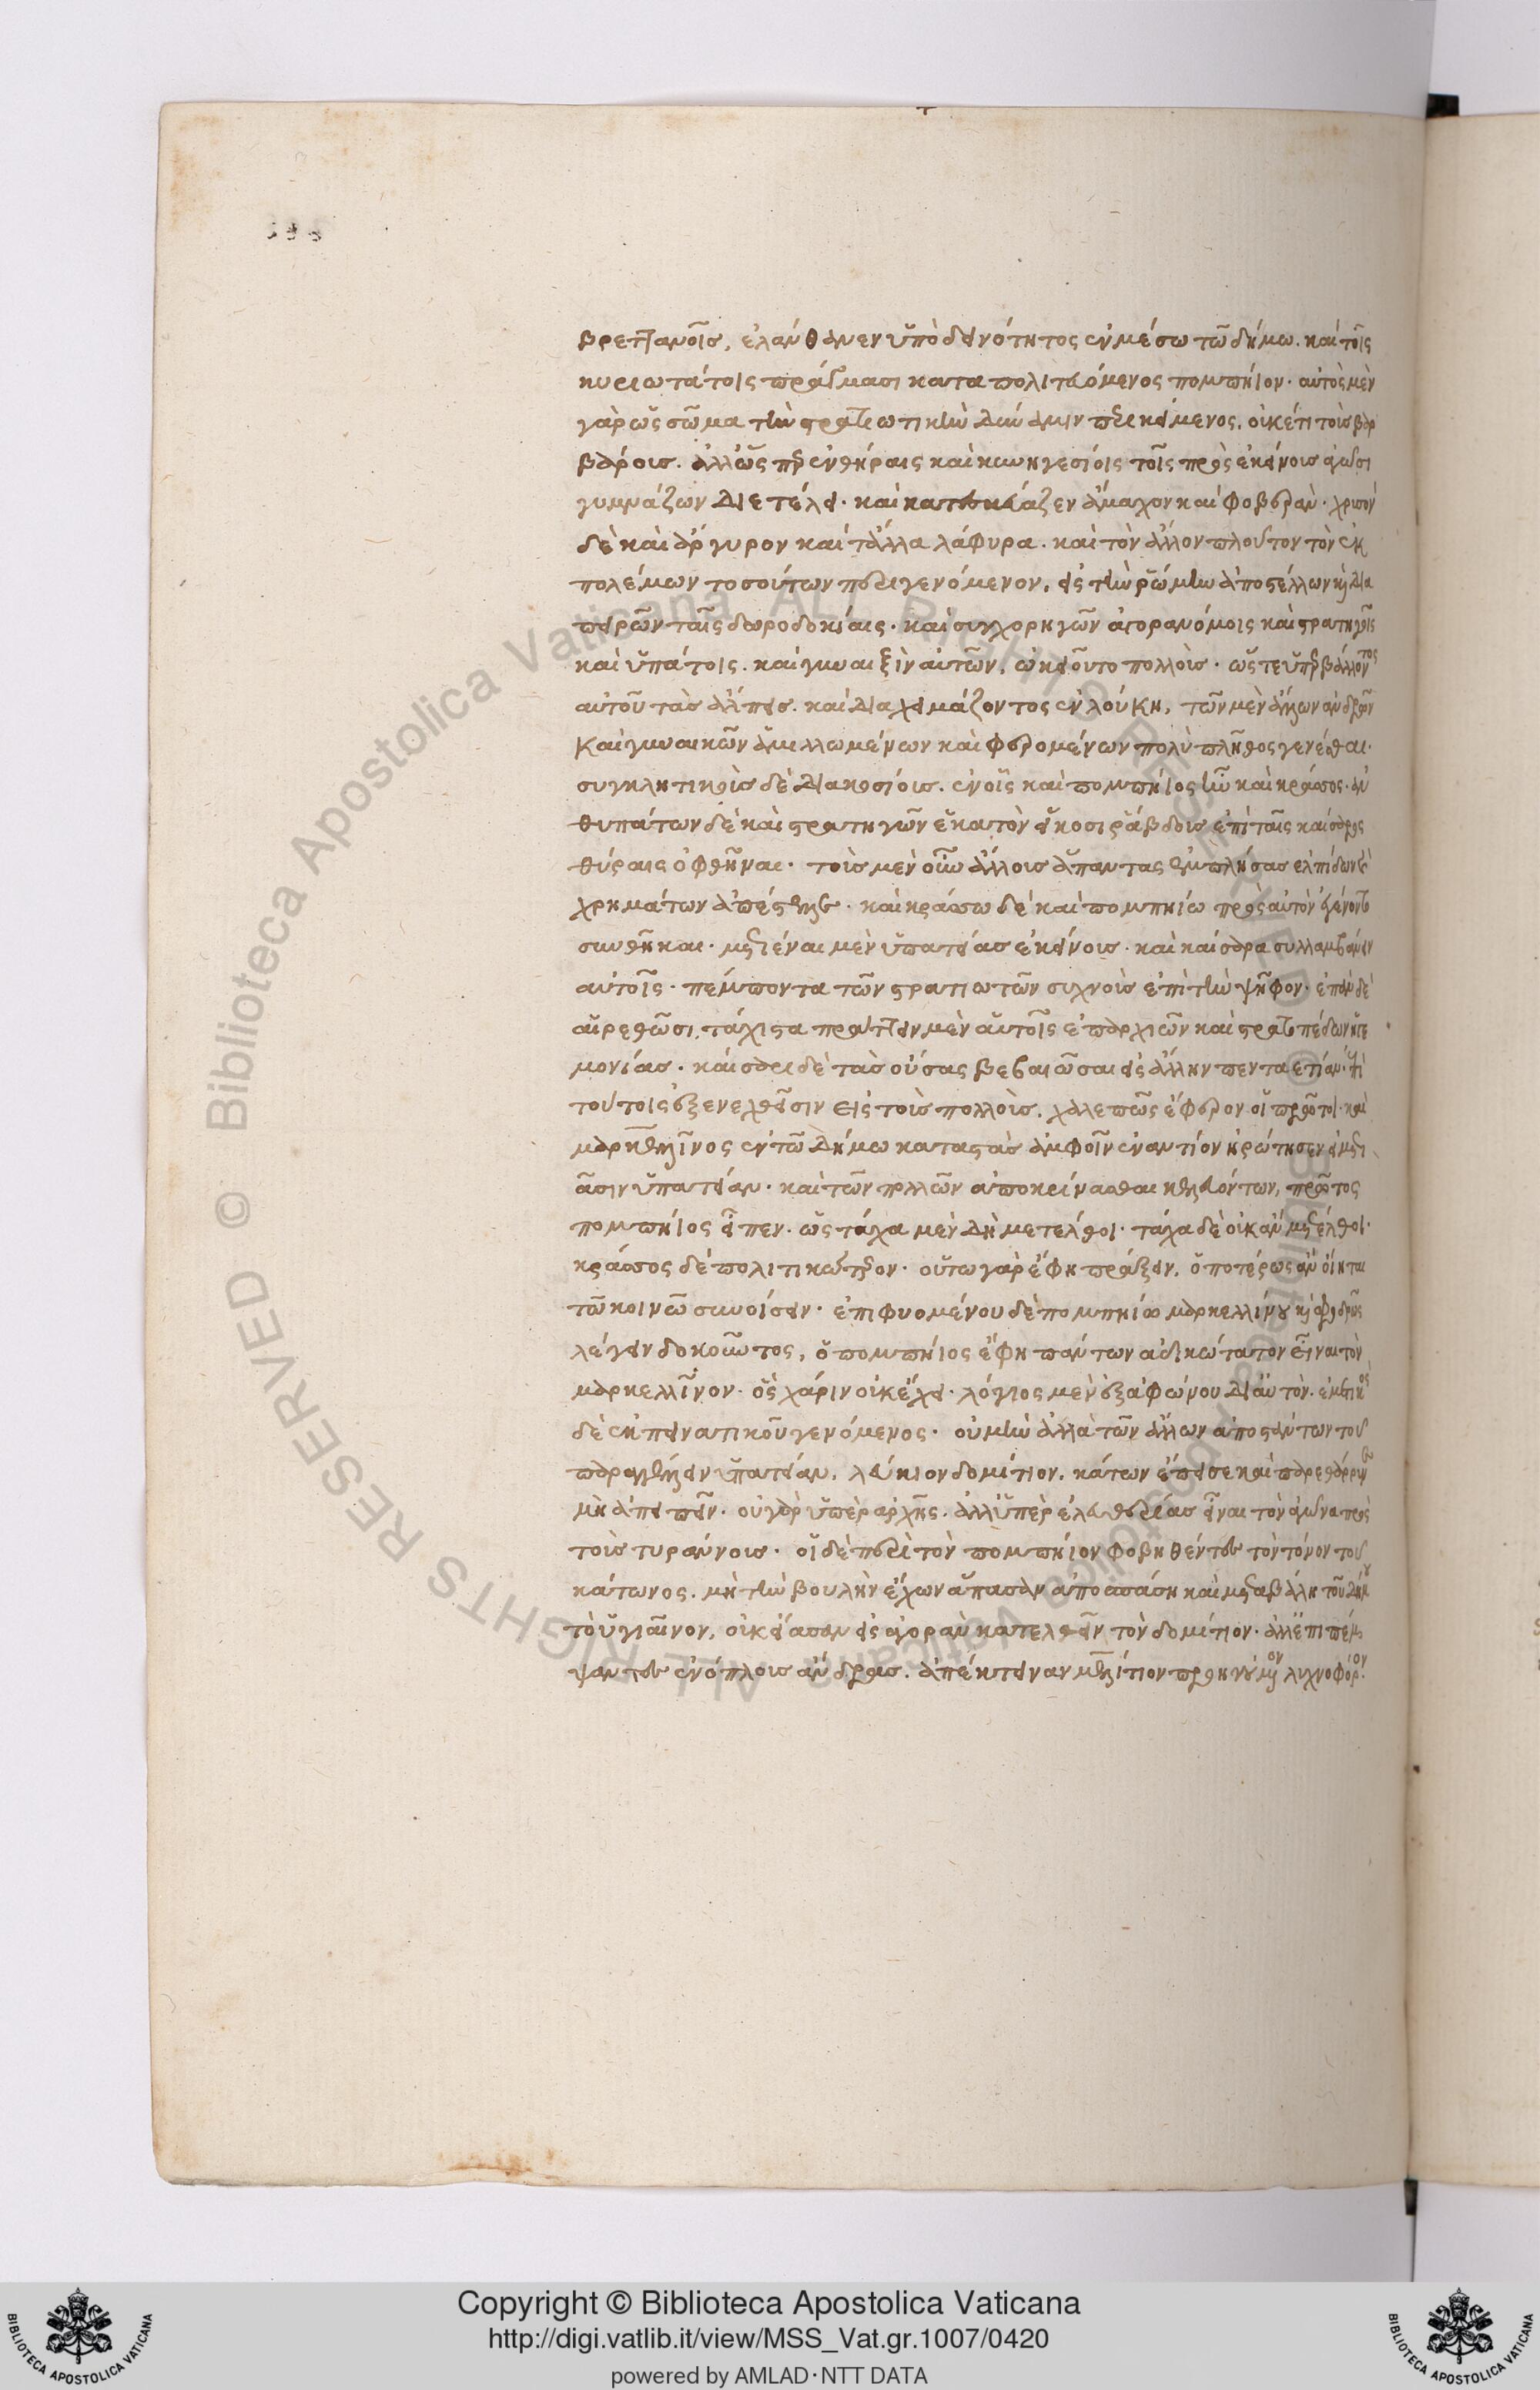 βρετταν̀οῖς, ἐλάνθανεν ὑπὸ δεινότητος ἐν μέσω τῶ δήμω. καὶ τοῖς
κυριωτάτοις πράγμασι καταπολιτευόμενος πομπήϊον. αὐτὸς μὲν
γὰρ ὡς σῶμα τὴν στρατιωτικὴν δύναμιν περικείμενος. οὐκέτι τοὺς βαρ
βάρους. ἀλλ' ὥσπερ ἐν θήραις καὶ κυνηγεσίοις τοῖς πρὸς ἐκείνους ἀγῶσι
γυμνάζων διετέλει. καὶ κατεσκεύαζεν ἄμαχον καὶ φοβεράν. χρυσὸν
δὲ καὶ ἄργυρον καὶ τἄλλα λάφυρα. καὶ τὸν ἄλλον πλοῦτον τὸν ἐκ
πολέμων τοσούτων περιγενόμενον, εἰς τὴν ῥώμην ἀποστέλλων καὶ δια
πειρῶν ταῖς δωροδοκίαις. καὶ συγχορηγῶν ἀγορανόμοις καὶ στρατηγοῖς
καὶ ὑπάτοις. καὶ γυναιξὶν αὐτῶν, ὠκειοῦτο πολλούς. ὥστε ὑπερβάλλοντος
αὐτοῦ τὰς ἄλπεις. καὶ διαχειμάζοντος ἐν λούκη, τῶν μὲν ἄλλων ἀνδρῶν
καὶ γυναικῶν ἁμιλλωμένων καὶ φερομένων πολὺ πλῆθος γενέσθαι.
συγκλητικοὺς δὲ διακοσίους. ἐν οἷς καὶ πομπήϊος ἦν καὶ κράσσος. ἀν
θυπάτων δὲ καὶ στρατηγῶν ἑκατὸν εἴκοσι ῥάβδους ἐπὶ ταῖς καίσαρος
θύραις ὀφθῆναι. τοὺς μὲν οὖν ἄλλους ἅπαντας ἐμπλήσας ἐλπίδων καὶ
χρημάτων ἀπέστελλε. καὶ κράσσω δὲ καὶ πομπηίω πρὸς αὐτὸν ἐγένοντο
συνθῆκαι. μετιέναι μὲν ὑπατείας ἐκείνους. καὶ καίσαρα συλλαμβάνειν
αὐτοῖς. πέμποντα τῶν στρατιωτῶν συχνοὺς ἐπὶ τὴν ψῆφον. ἐπὰν δὲ
αἱρεθῶσι, τάχιστα πράττειν μὲν αὑτοῖς ἐπαρχιῶν καὶ στρατοπέδων ἡγε
μονίας. καίσαρι δὲ τὰς οὔσας βεβαιῶσαι εἰς ἄλλην πενταετίαν. ἐπὶ
τούτοις ἐξενεχθεῖσιν εἰς τοὺς πολλοὺς, χαλεπῶς ἔφερον οἱ πρῶτοι. καὶ
μαρκελλῖνος ἐν τῶ δήμω καταστὰς ἀμφοῖν ἐναντίον ἠρώτησεν εἰ μετί
ασιν ὑπατείαν. καὶ τῶν πολλῶν ἀποκρίνασθαι κελευόντων, πρῶτος
πομπήϊος εἶπεν. ὡς τάχα μὲν δὴ μετέλθοι. τάχα δὲ οὐκ ἂν μετέλθοι.
κράσσος δὲ πολιτικώτερον. οὕτω γὰρ ἔφη πράξειν, ὁποτέρως ἂν οἴηται
τῶ κοινῶ συνοίσειν. ἐπιφυομένου δὲ πομπηίω μαρκελλίνου καὶ σφοδρῶς
λέγειν δοκοῦντος, ὁ πομπήϊος ἔφη πάντων ἀδικώτατον εἶναι τὸν
μαρκελλῖνον. ὃς χάριν οὐκ ἔχει. λόγιος μὲν ἐξ ἀφώνου δι' αὐτὸν. ἐμετικὸς
δὲ ἐκ πεινατικοῦ γενόμενος. οὐ μὴν ἀλλὰ τῶν ἄλλων ἀποστάντων τοῦ
παραγγέλλειν ὑπατείαν, λεύκιον δομίτιον, κάτων ἔπεισε καὶ παρεθάρρυνε
μὴ ἀπειπεῖν. οὐ γὰρ ὑπὲρ ἀρχῆς. ἀλλ' ὑπὲρ ἐλευθερίας εἶναι τὸν ἀγῶνα πρὸς
τοὺς τυράννους. οἱ δὲ περὶ τὸν πομπήϊον φοβηθέντες τὸν τόνον τοῦ
κάτωνος. μὴ τὴν βουλὴν ἔχων ἅπασαν ἀποσπάση καὶ μεταβάλη τοῦ δήμου
τὸ ὑγιαῖνον, οὐκ εἴασαν εἰς ἀγορὰν κατελθεῖν τὸν δομίτιον. ἀλλ' ἐπιπέμ
ψαντες ἐνόπλους ἄνδρας. ἀπέκτειναν μελίτιον προηγούμενον λυχνοφόρον.